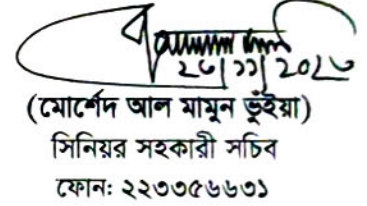 (মোর্শেদ আল মামুন ভূঁইয়া)
সিনিয়র সহকারী সচিব
ফোন: ২২৩৩৫৬৬৩১